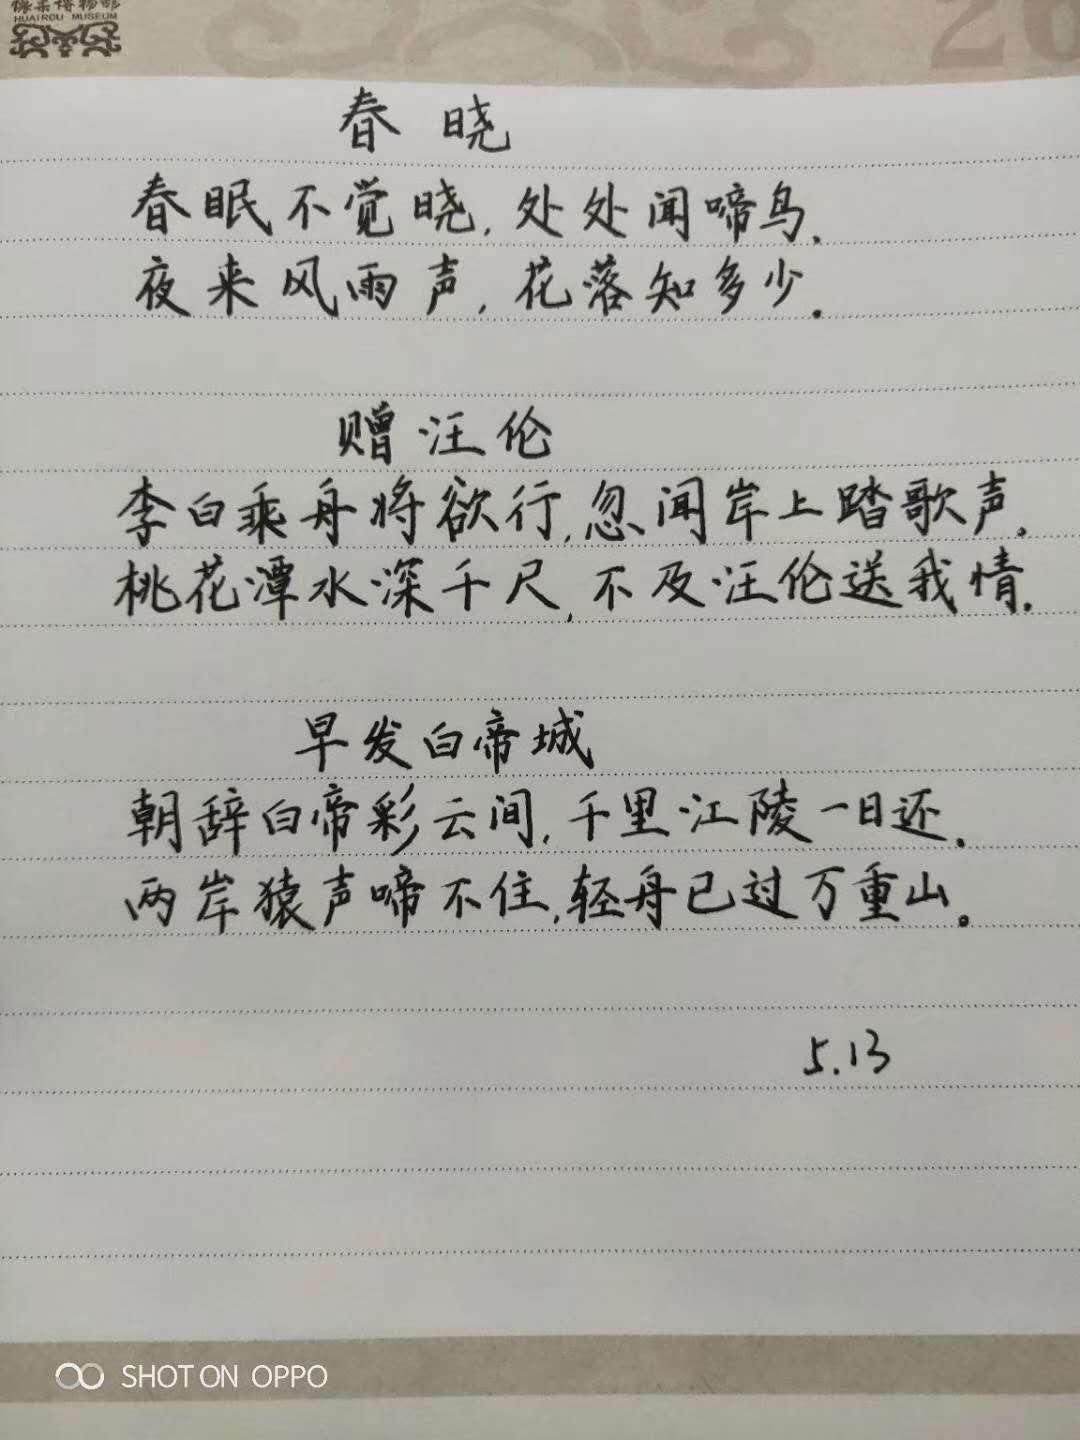 怀柔博物馆
HUAIROU MUSEUM
20
春晓
春眠不觉晓,处处闻啼鸟.
夜来风雨声,花落知多少.
赠汪伦
李白乘舟将欲行,忽闻岸上踏歌声.
桃花潭水深千尺,不及汪伦送我情.
早发白帝城
朝辞白帝彩云间,千里江陵一日还.
两岸猿声啼不住,轻舟已过万重山.
5.13
SHOT ON OPPO